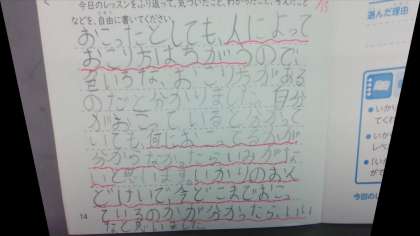 今日のレッスンをふり返って、気づいたこと、わかったこと、考えたこと
などを、自由に書いてください。
おこったとしても、人によって
おこり方はちがうので、
いろいろな、おこり方がある
のだと分かりました。自分
がおこっているとわかって
いても、何におこってるかが
分からなかったらいみがな
いと思います。いかりのおん
どけいで、今どこまでおこっ
ているのかが分かったら、いい
なと思いました。
14
選んだ理由
いかり
てくだ
レベ